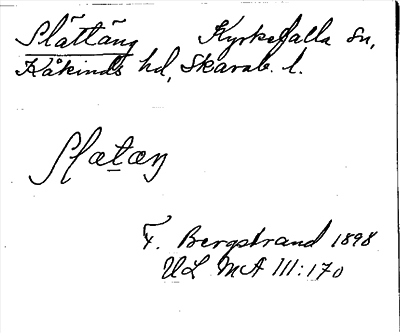 Slättäng Kyrkefalla sn,
Kåkinds hd, Skarab. l.
Slætæŋ
F. Bergstrand 1898
UL MA III:170